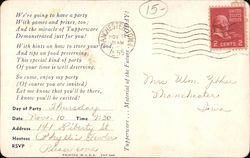 15-
We're going to have a party
With games and prizes, too;
And the miracle of Tupperware
Demonstrated just for you!
With hints on how to store your food
And tips on food preserving,
This special kind of party
Of your time is well deserving.
So come, enjoy my party
(Of course you are invited)
Let me know that you'll be there,
I know you'll be excited!
Day of Party Thursday
Date Nov. 10 Time 7:30
Address 141 Liberty St
Hostess Phyllis
RSVP Please come
PRINTED IN U.S.A.
MANCHESTER
NOV
1955
2 CENTS 2
Mrs Wm.
Manchester
Iowa